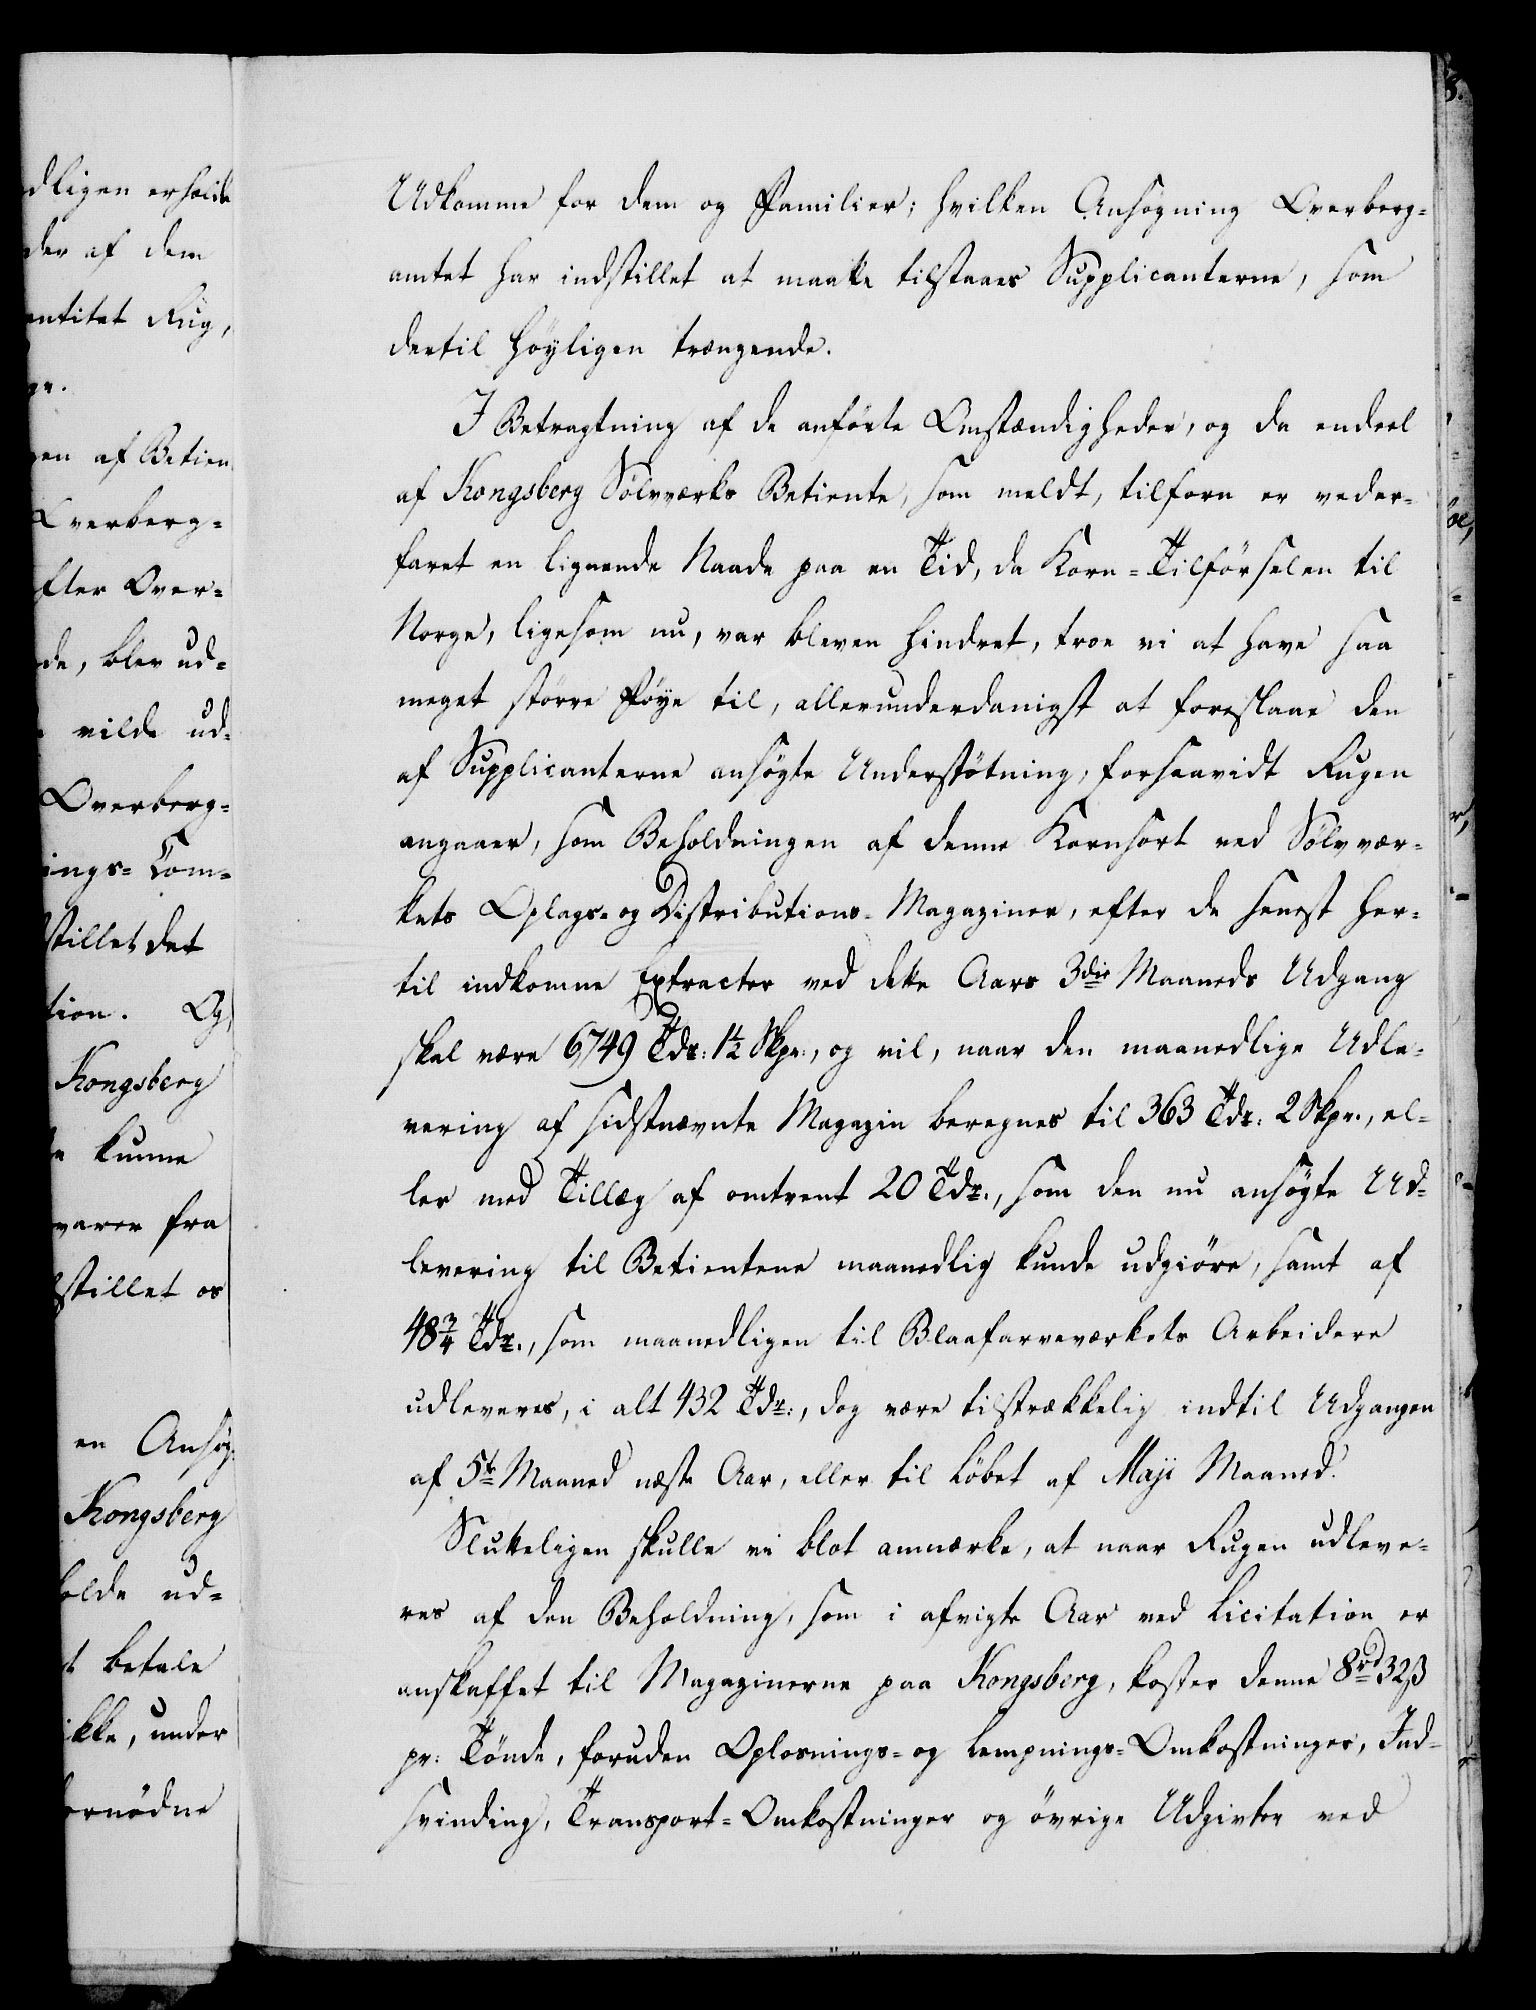 dligen erholde
der af dem
antitet Rug,
ge.
gen af Betien
Overberg=
fter Over=
de, blev ud=
vilde ud=
Overberg=
ings= Com=
stillet det
tion. Og,
Kongsberg
kunne
varer fra
stillet os
en Ansøg=
Kongsberg
holde ud=
t betale
ikke, under
fornødne
Udkomme for dem og Familier; hvilken Ansøgning Overberg=
amtet har indstillet at maatte tilstaaes Supplicanterne, som
dertil høyligen trængende.
I Betragtning af de anførte Omstændigheder, og da endeel
af Kongsberg Sølvværks Betiente, som meldt, tilforn er veder=
faret en lignende Naade paa en Tid, da Korn=Tilførselen til
Norge, ligesom nu, var bleven hindret, troe vi at have saa
meget større Føye til, allerunderdanigst at foreslaae den
af Supplicanterne ansøgte Understøtning, forsaavidt Rugen
angaaer, som Beholdningen af denne Kornsort ved Sølvvær=
kets Oplags= og Distributions=Magaziner, efter de senest her=
til indkomne Extracter ved dette Aars 3die Maaneds Udgang
skal være 6749 Tdr: 1½ Skpr:, og vil, naar den maanedlige Udle=
vering af sidstnævnte Magazin beregnes til 363 Tdr: 2 Skpr., el=
ler med Tillæg af omtrent 20 Tdr., som den nu ansøgte Ud=
levering til Betientene maanedlig kunde udgiøre, samt af
48¾ Tdr., som maanedligen til Blaafarveværkets Arbeidere
udleveres, i alt 432 Tdr:, dog være tilstrækkelig indtil Udgangen
af 5te Maaned næste Aar, eller til Løbet af Maji Maaned.
Slutteligen skulle vi blot anmærke, at naar Rugen udleve=
res af den Beholdning, som i afvigte Aar ved Licitation er
anskaffet til Magazinerne paa Kongsberg, koster denne 8rd 32ß
pr: Tønde, foruden Oplosnings= og Lempnings=Omkostninger, Ind=
svinding, Transport=Omkostninger og øvrige Udgivter ved